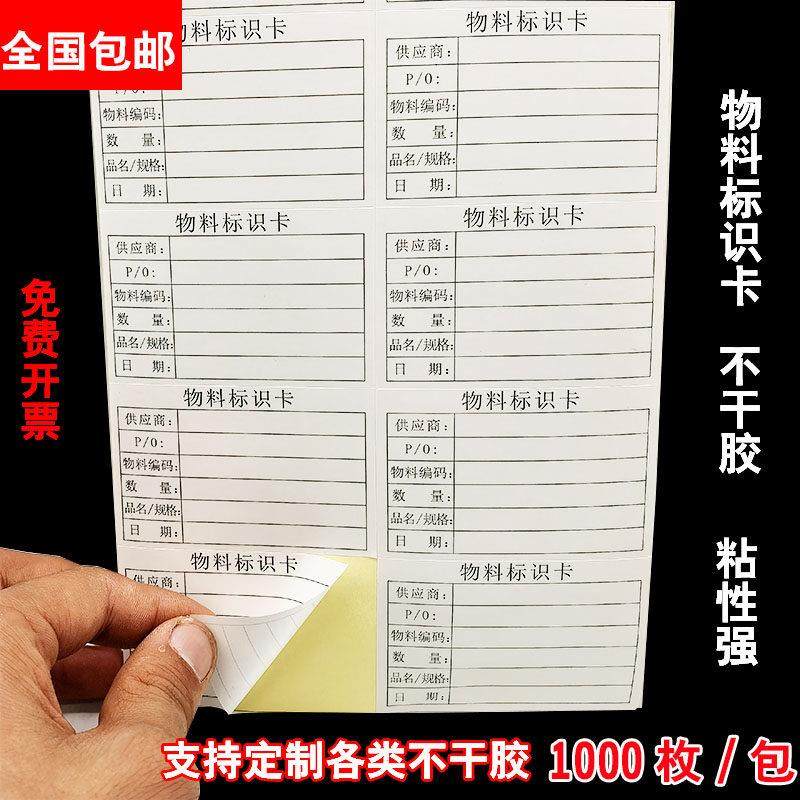 全国包邮
物料标识卡
P/O:
物料编码:
数 量:
品名/规格:
日 期:
物料标识卡
供应商:
P/O:
物料编码:
数 量:
品名/规格:
日 期:
物料标识卡
供应商:
P/O:
物料编码:
数 量:
品名/规格:
日 期:
物料标识卡
供应商:
P/O:
物料编码:
数 量:
品名/规格:
日 期:
物料标识卡
供应商:
P/O:
物料编码:
数 量:
品名/规格:
日 期:
物料标识卡
供应商:
P/O:
物料编码:
数 量:
品名/规格:
日 期:
物料标识卡
供应商:
物料标识卡
供应商:
P/O:
物料编码:
数 量:
品名/规格:
日 期:
免费开票
物料标识卡 不干胶 粘性强
支持定制各类不干胶 1000枚/包